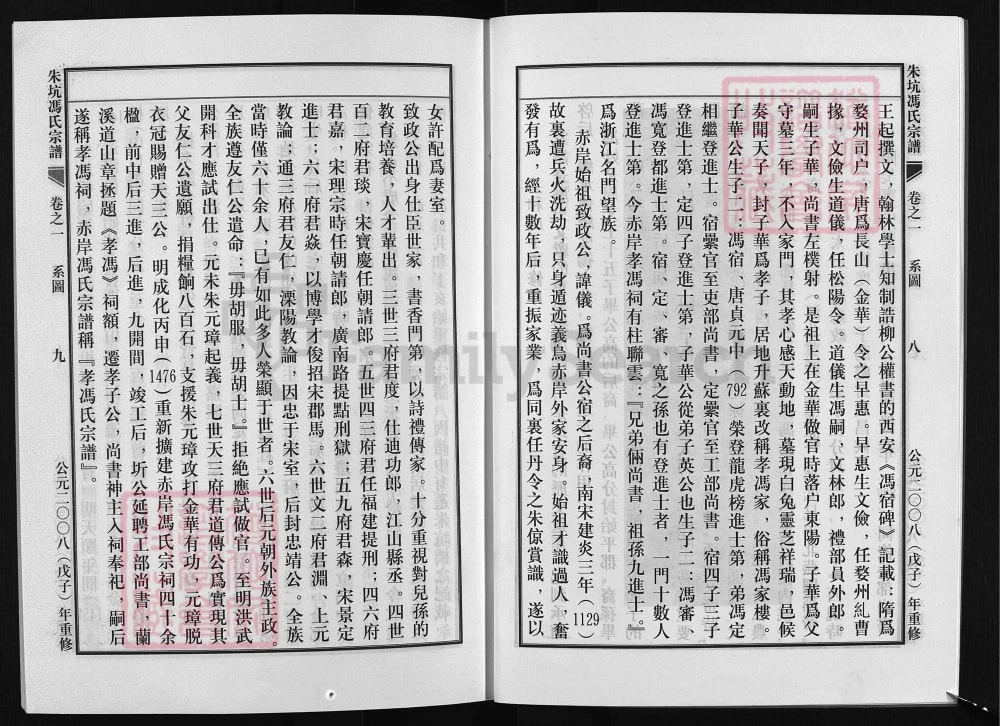 朱坑馮氏宗譜 卷之一 系圖 八 公元二〇〇八(戊子)年重修
王起撰文,翰林學士知制誥柳公權書的西安《馮宿碑》記載:隋爲
婺州司户,唐爲長山(金華)令之早惠。早惠生文儉,任婺州糺曹
掾,文儉生道儀,任松陽令。道儀生馮嗣,文林郎,禮部員外郎。
嗣生子華,尚書左樸射。是祖上在金華做官時落户東陽。子華爲父
守墓三年,不入家門,其孝心感天動地,墓現白兔靈芝祥瑞,邑候
奏聞天子,封子華爲孝子,居地升蘇裏改稱孝馮家,俗稱馮家樓。
子華公生子二:馮宿、唐貞元中(792)榮登龍虎榜進士第,弟馮定
相繼登進士。宿纍官至吏部尚書,定纍官至工部尚書。宿四子三子
登進士第,定四子登進士第,子華公從弟子英公也生子二:馮審、
馮寬登都進士第。宿、定、審、寬之孫也有登進士者,一門十數人
登進士第。今赤岸孝馮祠有柱聯雲:『兄弟倆尚書,祖孫九進士。』
爲浙江名門望族。
赤岸始祖致政公,諱儀。爲尚書公宿之后裔,南宋建炎三年(1129)
故裏遭兵火洗劫,只身遁迹義烏赤岸外家安身。始祖才識過人,奮
發有爲,經十數年后,重振家業,爲同裏任丹令之朱倞賞識,遂以
女許配爲妻室。
致政公出身仕臣世家,書香門第,以詩禮傳家。十分重視對兒孫的
教育培養,人才輩出。三世三府君度,仕迪功郎,江山縣丞。四世
百二府君琰,宋寶慶任朝請郎。五世四三府君任福建提刑;四六府
君嘉,宋理宗時任朝請郎,廣南路提點刑獄;五九府君森,宋景定
進士;六一府君焱,以博學才俊招宋郡馬。六世文二府君淵、上元
教諭;通三府君友仁,溧陽教諭,因忠于宋室,后封忠靖公。全族
當時僅六十余人,已有如此多人榮顯于世者。六世后元朝外族主政。
全族遵友仁公遺命:『毋胡服,毋胡士』。拒絶應試做官。至明洪武
開科才應試出仕。元末朱元璋起義,七世天三府君道傳公爲實現其
父友仁公遺願,捐糧餉八百石,支援朱元璋攻打金華有功,元璋脱
衣冠賜贈天三公。明成化丙申(1476)重新擴建赤岸馮氏宗祠四十余
楹,前中后三進,后進,九開間,竣工后,圻公延聘工部尚書,蘭
溪道山章拯題《孝馮》祠額,遷孝子公,尚書神主入祠奉祀,嗣后
遂稱孝馮祠,赤岸馮氏宗譜稱『孝馮氏宗譜』。
朱坑馮氏宗譜 卷之一 系圖 九 公元二〇〇八(戊子)年重修